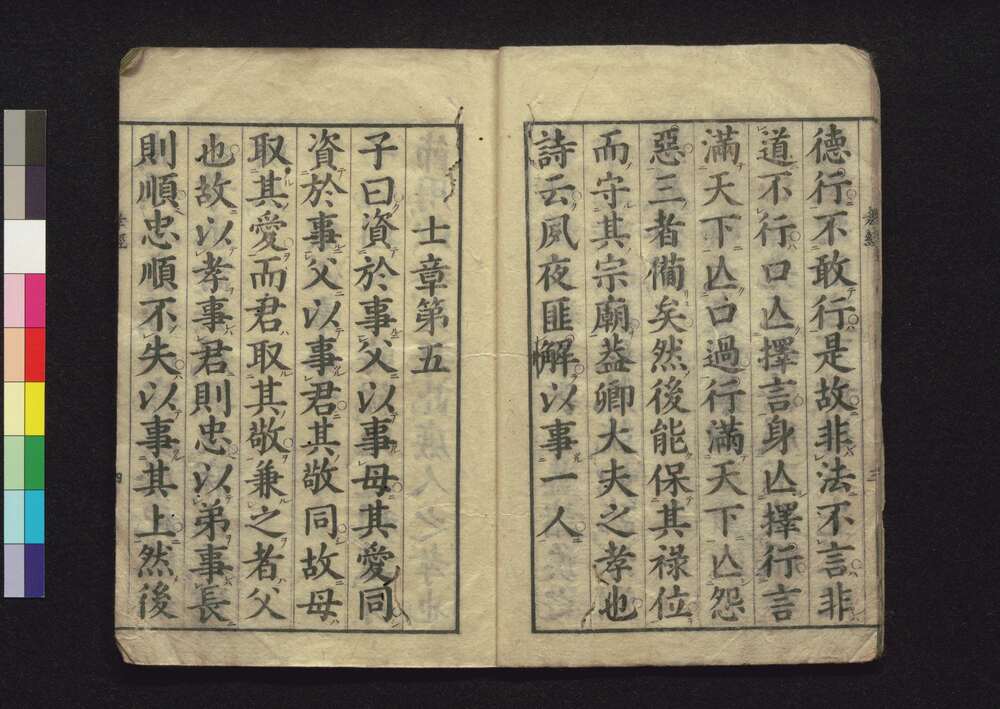 德行不敢行是故非法不言非
道不行口亾擇言身亾擇行言
滿天下亾口過行滿天下亾怨
惡三者備矣然後能保其祿位
而守其宗廟葢卿大夫之孝也
詩云夙夜匪懈以事一人
士章第五
子曰資於事父以事母其愛同
資於事父以事君其敬同故母
取其愛而君取其敬兼之者父
也故以孝事君則忠以弟事長
則順忠順不失以事其上然後
孝經
四